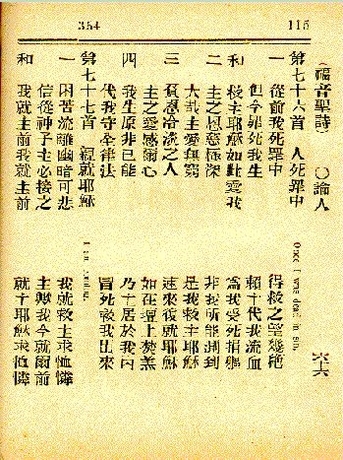 354
115
(福音聖詩) 〇論人 六十六
第七十六首 人死罪中 Once I was dead in sin.
一 從前我死罪中 得救之望幾絶
但今罪死我生 賴主代我流血
和 救主耶穌如此愛我 爲我受死捐軀
二 主之恩慈極深 非我所能測到
大哉主愛無窮 是我救主耶穌
三 負恩冷淡之人 速來復就耶穌
主之愛感爾心 如在壇上焚
四 我生原非己能 乃主居於我內
代我守全律法 冒死救我出來
第七十七首 親就耶穌 I am coming.
一 困苦流離幽暗可悲 我就救主求恤憐
信從神子主必接之 主歟我今就爾前
和 我就主前我就主前 就主耶穌求恤憐